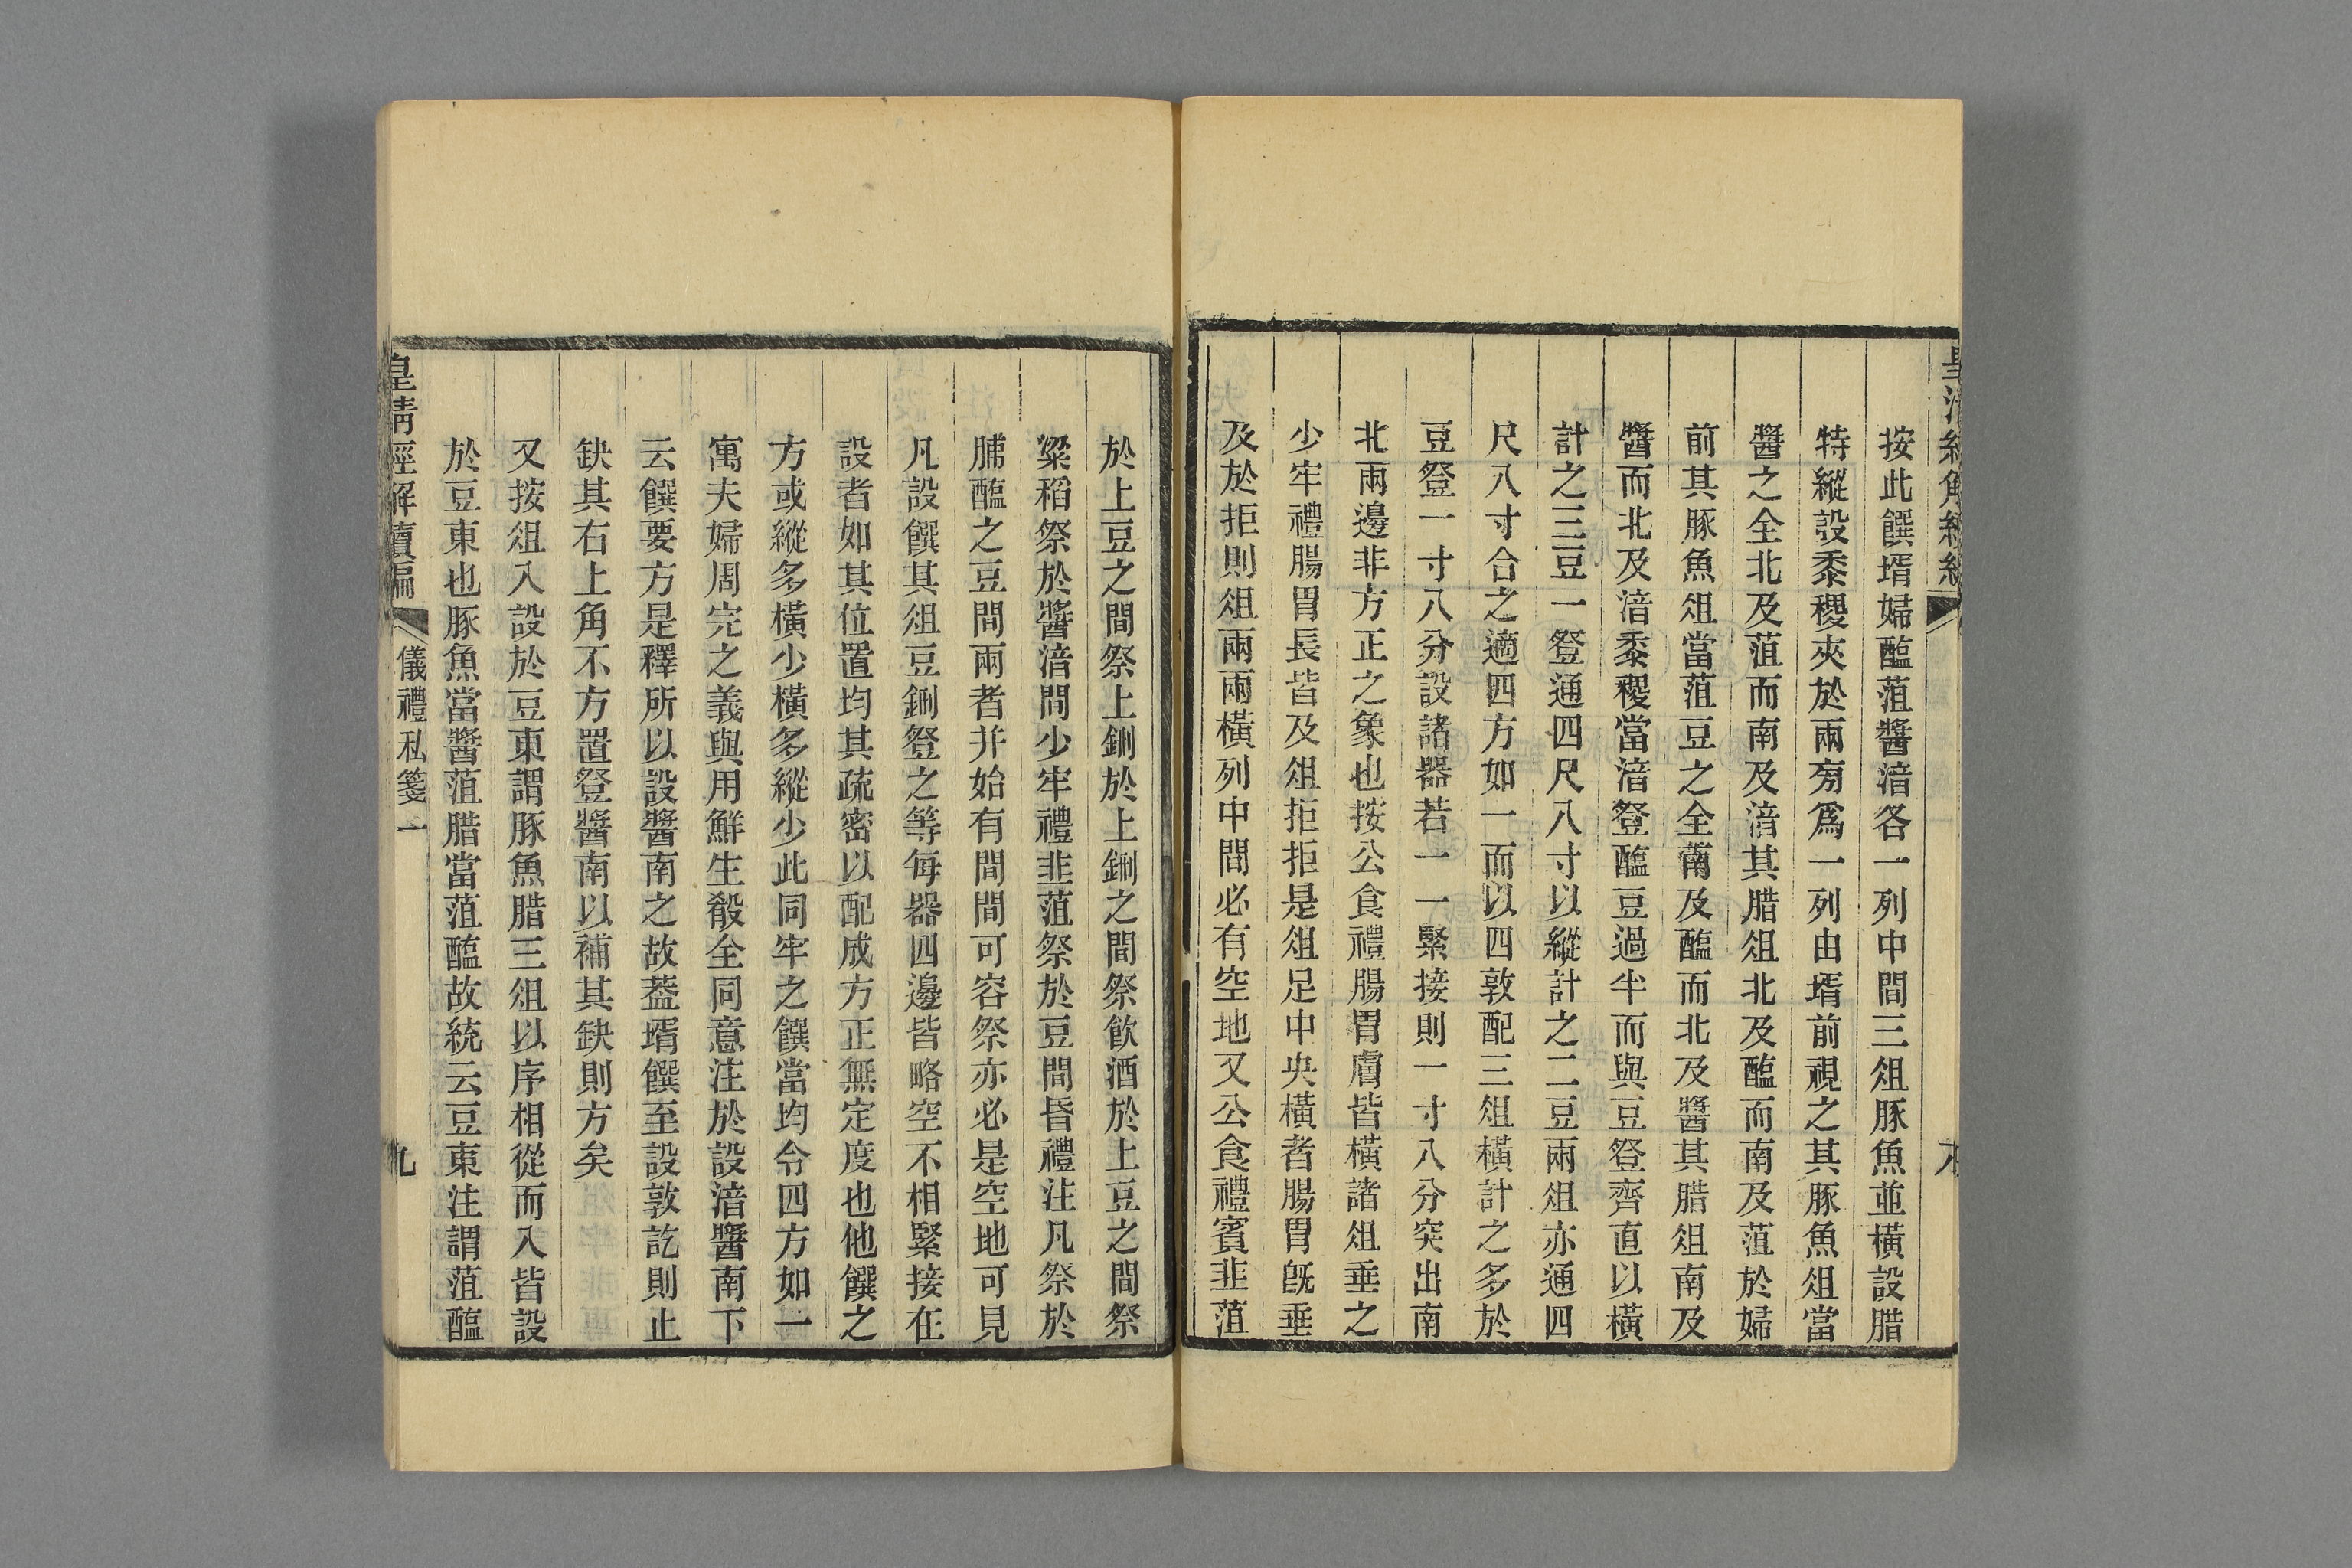 按此饌壻婦醢菹醬湆各一列中間三俎豚魚並橫設腊
特縱設黍稷夾於兩旁爲一列由壻前視之其豚魚俎當
醬之全北及菹而南及湆其腊俎北及醢而南及菹於婦
前其豚魚俎當菹豆之全南及醢而北及醬其腊俎南及
醬而北及湆黍稷當湆登醢豆過半而與豆登齊直以橫
計之三豆一登通四尺八寸以縱計之二豆兩俎亦通四
尺八寸合之適四方如一而以四敦配三俎橫計之多於
豆登一寸八分設諸器若一一緊接則一寸八分突出南
北兩邊非方正之象也按公食禮腸胃膚皆橫諸俎垂之
少牢禮腸胃長皆及俎拒拒是俎足中央橫者腸胃旣垂
及於拒則俎兩兩橫列中間必有空地又公食禮賓韭菹
於上豆之間祭上鉶於上鉶之間祭飮酒於上豆之間祭
粱稻祭於醬湆間少牢禮韭菹祭於豆間昏禮注凡祭於
脯醢之豆間兩者并始有間間可容祭亦必是空地可見
凡設饌其俎豆鉶登之等每器四邊皆略空不相緊接在
設者如其位置均其疏密以配成方正無定度也他饌之
方或縱多橫少橫多縱少此同牢之饌當均令四方如一
寓夫婦周完之義與用鮮生殽全同意注於設湆醬南下
云饌要方是釋所以設醬南之故葢壻饌至設敦訖則止
缺其右上角不方置登醬南以補其缺則方矣
又按俎入設於豆東謂豚魚腊三俎以序相從而入皆設
於豆東也豚魚當醬菹腊當菹醢故統云豆東注謂菹醢
皇淸經解續編
儀禮私箋一
九